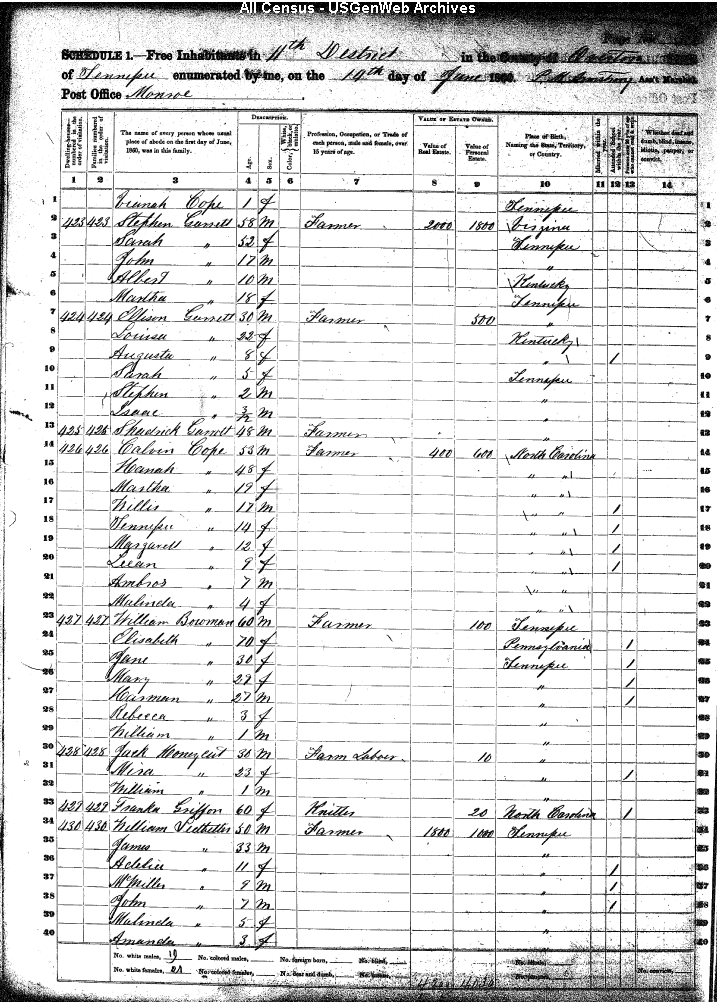 All Census - USGenWeb Archives
SCHEDULE 1.—Free Inhabitants in 11th District in the County of Overton
of Tennessee enumerated by me, on the 19th day of June 1860. Ass't Marshal
Post Office Monroe
Dwelling-houses—numbered in the order of visitation.
Families numbered in the order of visitation.
The name of every person whose usual place of abode on the first day of June, 1860, was in this family.
DESCRIPTION.
Age.
Sex.
Color, White, black, or mulatto.
Profession, Occupation, or Trade of each person, male and female, over 15 years of age.
VALUE OF ESTATE OWNED.
Value of Real Estate.
Value of Personal Estate.
Place of Birth, Naming the State, Territory, or Country.
Married within the year.
Attended School within the year.
Whether deaf and dumb, blind, insane, idiotic, pauper, or convict.
1 2 3 4 5 6 7 8 9 10 11 12 13 14
1 Cope 1 f Tennessee 1
2 423 423 Stephen Garrett 58 M Farmer 2000 1800 Virginia 2
3 Sarah " 52 f Tennessee 3
4 John " 17 M " 4
5 Albert " 10 M Kentucky 5
6 Martha " 18 f Tennessee 6
7 424 424 Ellison Garrett 30 M Farmer 500 " 7
8 Louisa " 22 f Kentucky 8
9 Augusta " 8 f " 1 9
10 Sarah " 5 f Tennessee 10
11 Stephen " 2 M " 11
12 Isaac " 3/12 M " 12
13 425 425 Shadrick Garrett 48 M Farmer " 13
14 426 426 Calvin Cope 53 M Farmer 400 600 North Carolina 14
15 Hanah " 48 f " " 15
16 Martha " 19 f " " 16
17 Willis " 17 M " " 1 17
18 Tennessee " 14 f " " 1 18
19 Margarett " 12 f " " 1 19
20 " 9 f " " 1 20
21 Ambros " 7 M " " 21
22 Malinda " 4 f " " 22
23 427 427 William Bowman 60 M Farmer 100 Tennessee 23
24 Elisabeth " 70 f Pennsylvania 1 24
25 Jane " 30 f Tennessee 1 25
26 Mary " 29 f " 1 26
27 Harman " 27 M " 1 27
28 Rebecca " 3 f " 28
29 William " 1 M " 29
30 428 428 Jack Honeycut 30 M Farm Labour 10 " 30
31 Mira " 23 f " 1 31
32 William " 1 M " 32
33 429 429 Franka Griffon 60 f Knitter 20 North Carolina 1 33
34 430 430 William 50 M Farmer 1800 1000 Tennessee 34
35 James " 33 M " 35
36 Adelia " 11 f " 1 36
37 McMiller " 9 M " 1 37
38 John " 7 M " 1 38
39 Malinda " 5 f " 39
40 Amanda " 3 f " 40
No. white males, 19 No. colored males, No. foreign born, No. blind,
No. white females, 21 No. colored females, No. deaf and dumb, No. convicts,